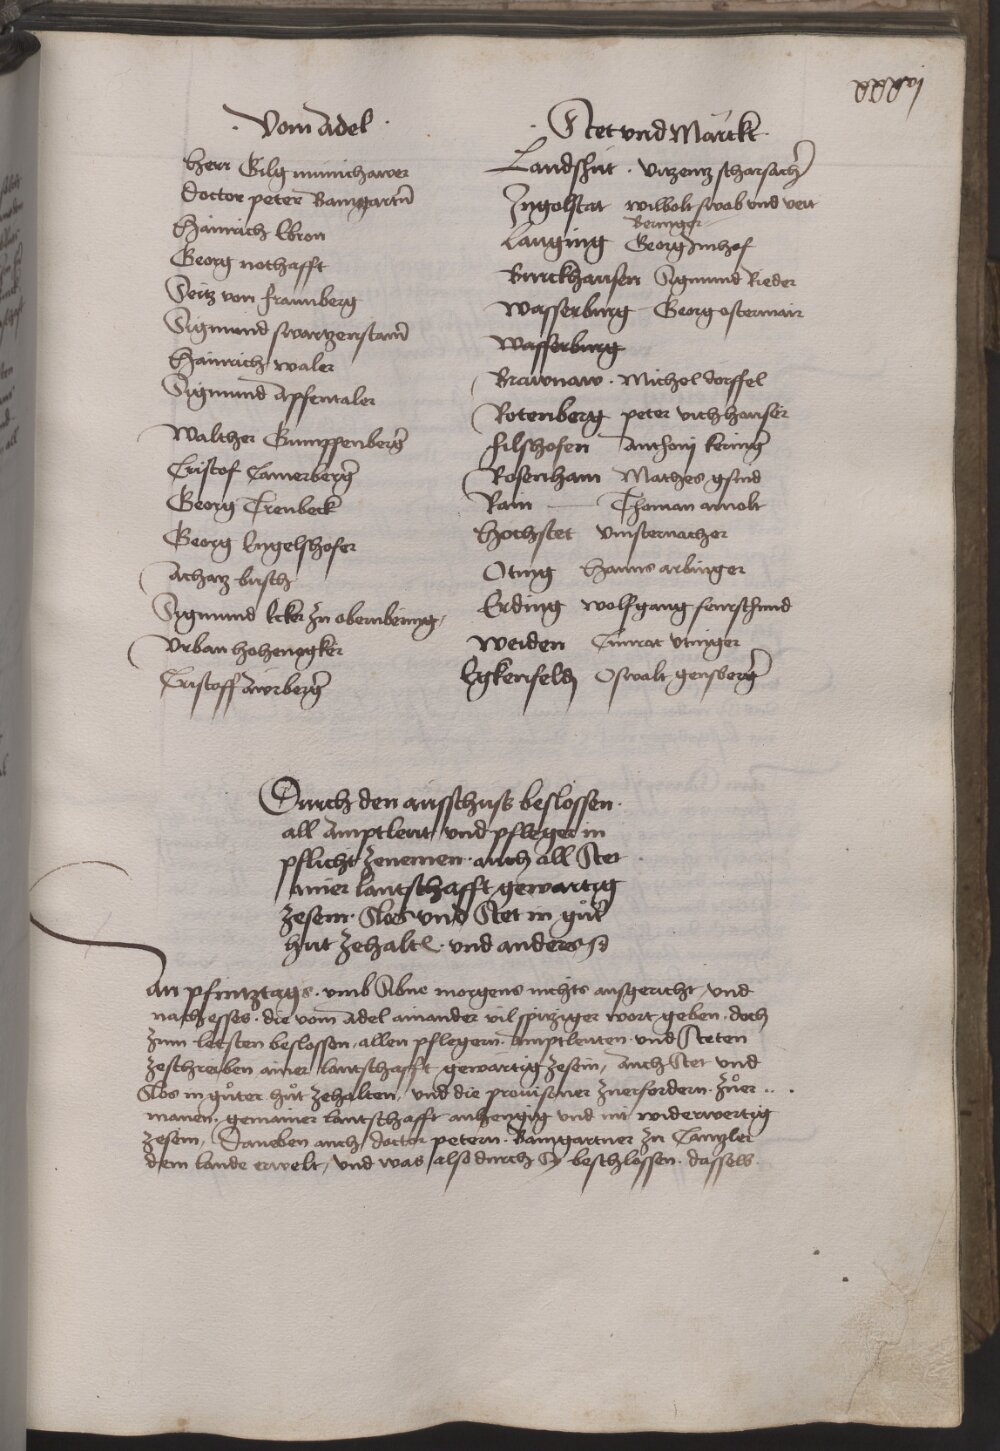 xxxvj
Vom Adel
Herr Gilg Münichawer
Doctor peter Bamgartner
Hainrich Ebron
Georg nothafft
Seitz von fraunberg
Sigmund swartzenstainer
Hainrich waler
Sigmund Apfentaler
Walther Gumppenberger
Cristof Camerberger
Georg Trenbeck
Georg Engelshofer
Achatz busch
Sigmund Ecker zu obernbering
Vrban hohenegker
Cristoff Awrberger
Stet vnd Märckt
Landshut . Vitzentz scharsacher
Ingolstat wilbolt swab vnd veit
Beringer
Lauging Georg Imhof
Burckhausen Sigmund Rieder
Wasserburg Georg ostermair
Wasserburg
Brawnaw . Michel dorffel
Rotenberg peter vichhauser
filshofen Anthonj keringer
Rosenhaim Mathes gsind
Rain Thoman arnolt
Hochstet vinsternacher
Oting Hanns arbinger
Erding wolfgang feurschmid
Weiden Cunrat vtinger
Egkenfeld Oswalt gensberger
Durch den ausschuss beslossen .
all Amptleut vnd pfleger in
pflicht zenemen . auch all Stet
ainer lantschafft gewartig
zesein . Slos vnd Stet in guter
hut zehalten . vnd anders
An pfintztags . vmb Abne morgens nichts ausgericht, vnd
nach esses . die vom Adel ainander vil spitziger wort geben . doch
zum leesten beslossen, allen pflegern . Amptleuten . vnd Steten
zeschreiben ainer lantschafft gewärtig zesein, Auch Stet vnd
Slos in guter hut zehalten, vnd die prouisoner zuerfordern . zuer
manen . gemainer lantschafft anhengig vnd nit widerwertig
zesein, Daneben auch doctor petern . Bamgartner zu Cantzler
dem lande erwelt, vnd was also durch Sy beschlossen . dasselb